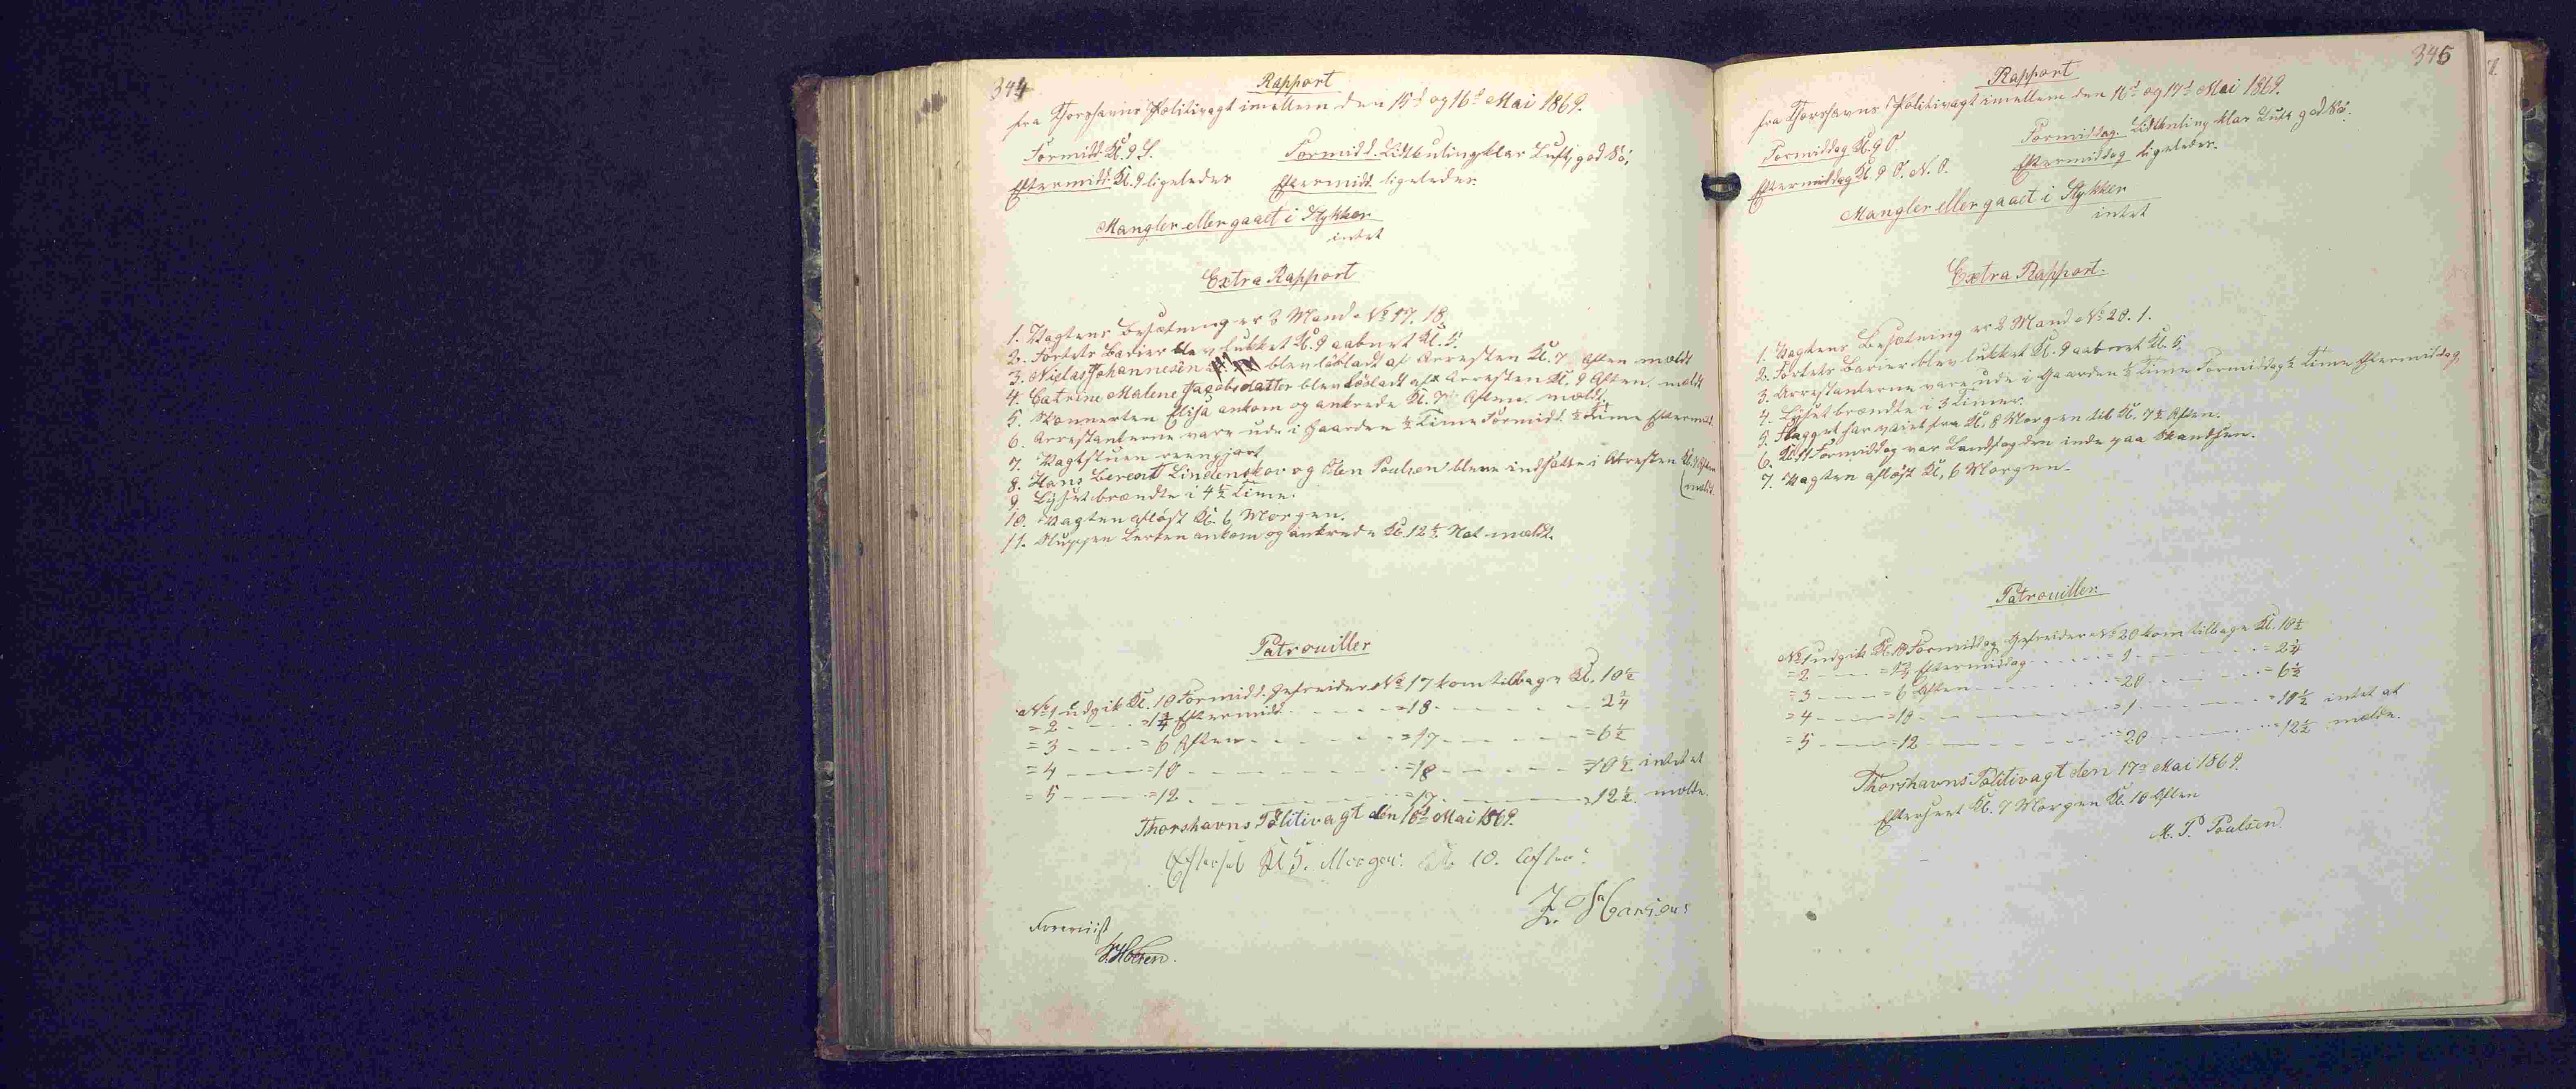 344
Rapport
fra Thorshavns Politivagt imellem den 15d og 16d Mai 1869.
Formidd. Kl. 9 S.
Formidd. Lidt kuling klar Luft, god Sö,
Eftermidd. Kl. 9 ligeledes
Eftermidd. ligeledes.
Mangler eller gaaet i Stykker
intet
Extra Rapport
1. Vagtens Besætning er 3 Mand No 17. 18.
2. Fortets Barier blev lukket Kl. 9 aabnet Kl. 5.
3. Niclas Johannesen blev lösladt af Arresten Kl. 7 Aften meldt
4. Catrine Malene Jacobsdatter blev lösladt af Arresten Kl. 9 Aften. meldt
5. Skonnerten Elisa ankom og ankrede Kl. 7 Aften. meldt.
6. Arrestanterne vare ude i Gaarden ½ Time Formidd. ½ Time Eftermid.
7. Vagtstuen reengjort
8. Hans Berent Lindenskov og Sten Poulsen bleve indsatte i Arresten Kl. 9 Aften
(meldt.
9. Lyset brændte i 4½ Time.
10. Vagten aflöst Kl. 6 Morgen.
11. Sluppen Lerken ankom og ankrede Kl. 12½ Nat meldt.
Patrouiller
No 1 udgik Kl. 10 Formidd. Gefreider No 17 kom tilbage Kl. 10½
= 2 - - - - = 1¾ Eftermidd. - - - - = 18 - - - - 2¼
= 3 - - - - = 6 Aften - - - - = 17 - - - - = 6½
= 4 - - - - = 10 - - - - = 18 - - - - = 10½ intet at
= 5 - - - - = 12 - - - - = 17 - - - - = 12½. melde.
Thorshavns Politivagt den 16d Mai 1869.
Efterseet Kl 5. Morgen. Kl. 10. Aften.
Foreviist
345
Rapport
fra Thorshavns Politivagt imellem den 16d og 17d Mai 1869.
Formiddag Kl. 9 O.
Formiddag. Lidt kuling klar Luft god Sö.
Eftermiddag Kl. 9 O. N. O.
Eftermiddag ligeledes.
Mangler eller gaaet i Stykker
intet
Extra Rapport.
1. Vagtens Besætning er 2 Mand No 20. 1.
2. Fortets Barier blev lukket Kl. 9 aabnet Kl. 5.
3. Arrestanterne vare ude i Gaarden ½ Time Formiddag ½ Time Eftermiddag.
4. Lyset brændte i 3 Timer.
5. Flagget har vaiet fra Kl. 8 Morgen til Kl. 7½ Aften.
6. Kl. 11 Formiddag var Landfogden inde paa Skandsen.
7. Vagten aflöst Kl. 6 Morgen.
Patrouiller
No 1 udgik Kl. 10 Formiddag Gefreider No 20 kom tilbage Kl. 10½
= 2 - - - - = 1¾ Eftermiddag - - - - = 1 - - - - = 2¼
= 3 - - - - = 6 Aften - - - - = 20 - - - - = 6½
= 4 - - - - = 10 - - - - = 1 - - - - = 10½ intet at
= 5 - - - - = 12 - - - - = 20 - - - - = 12½ melde.
Thorshavns Politivagt den 17d Mai 1869.
Efterseet Kl. 7 Morgen Kl. 10 Aften
M. P. Poulsen